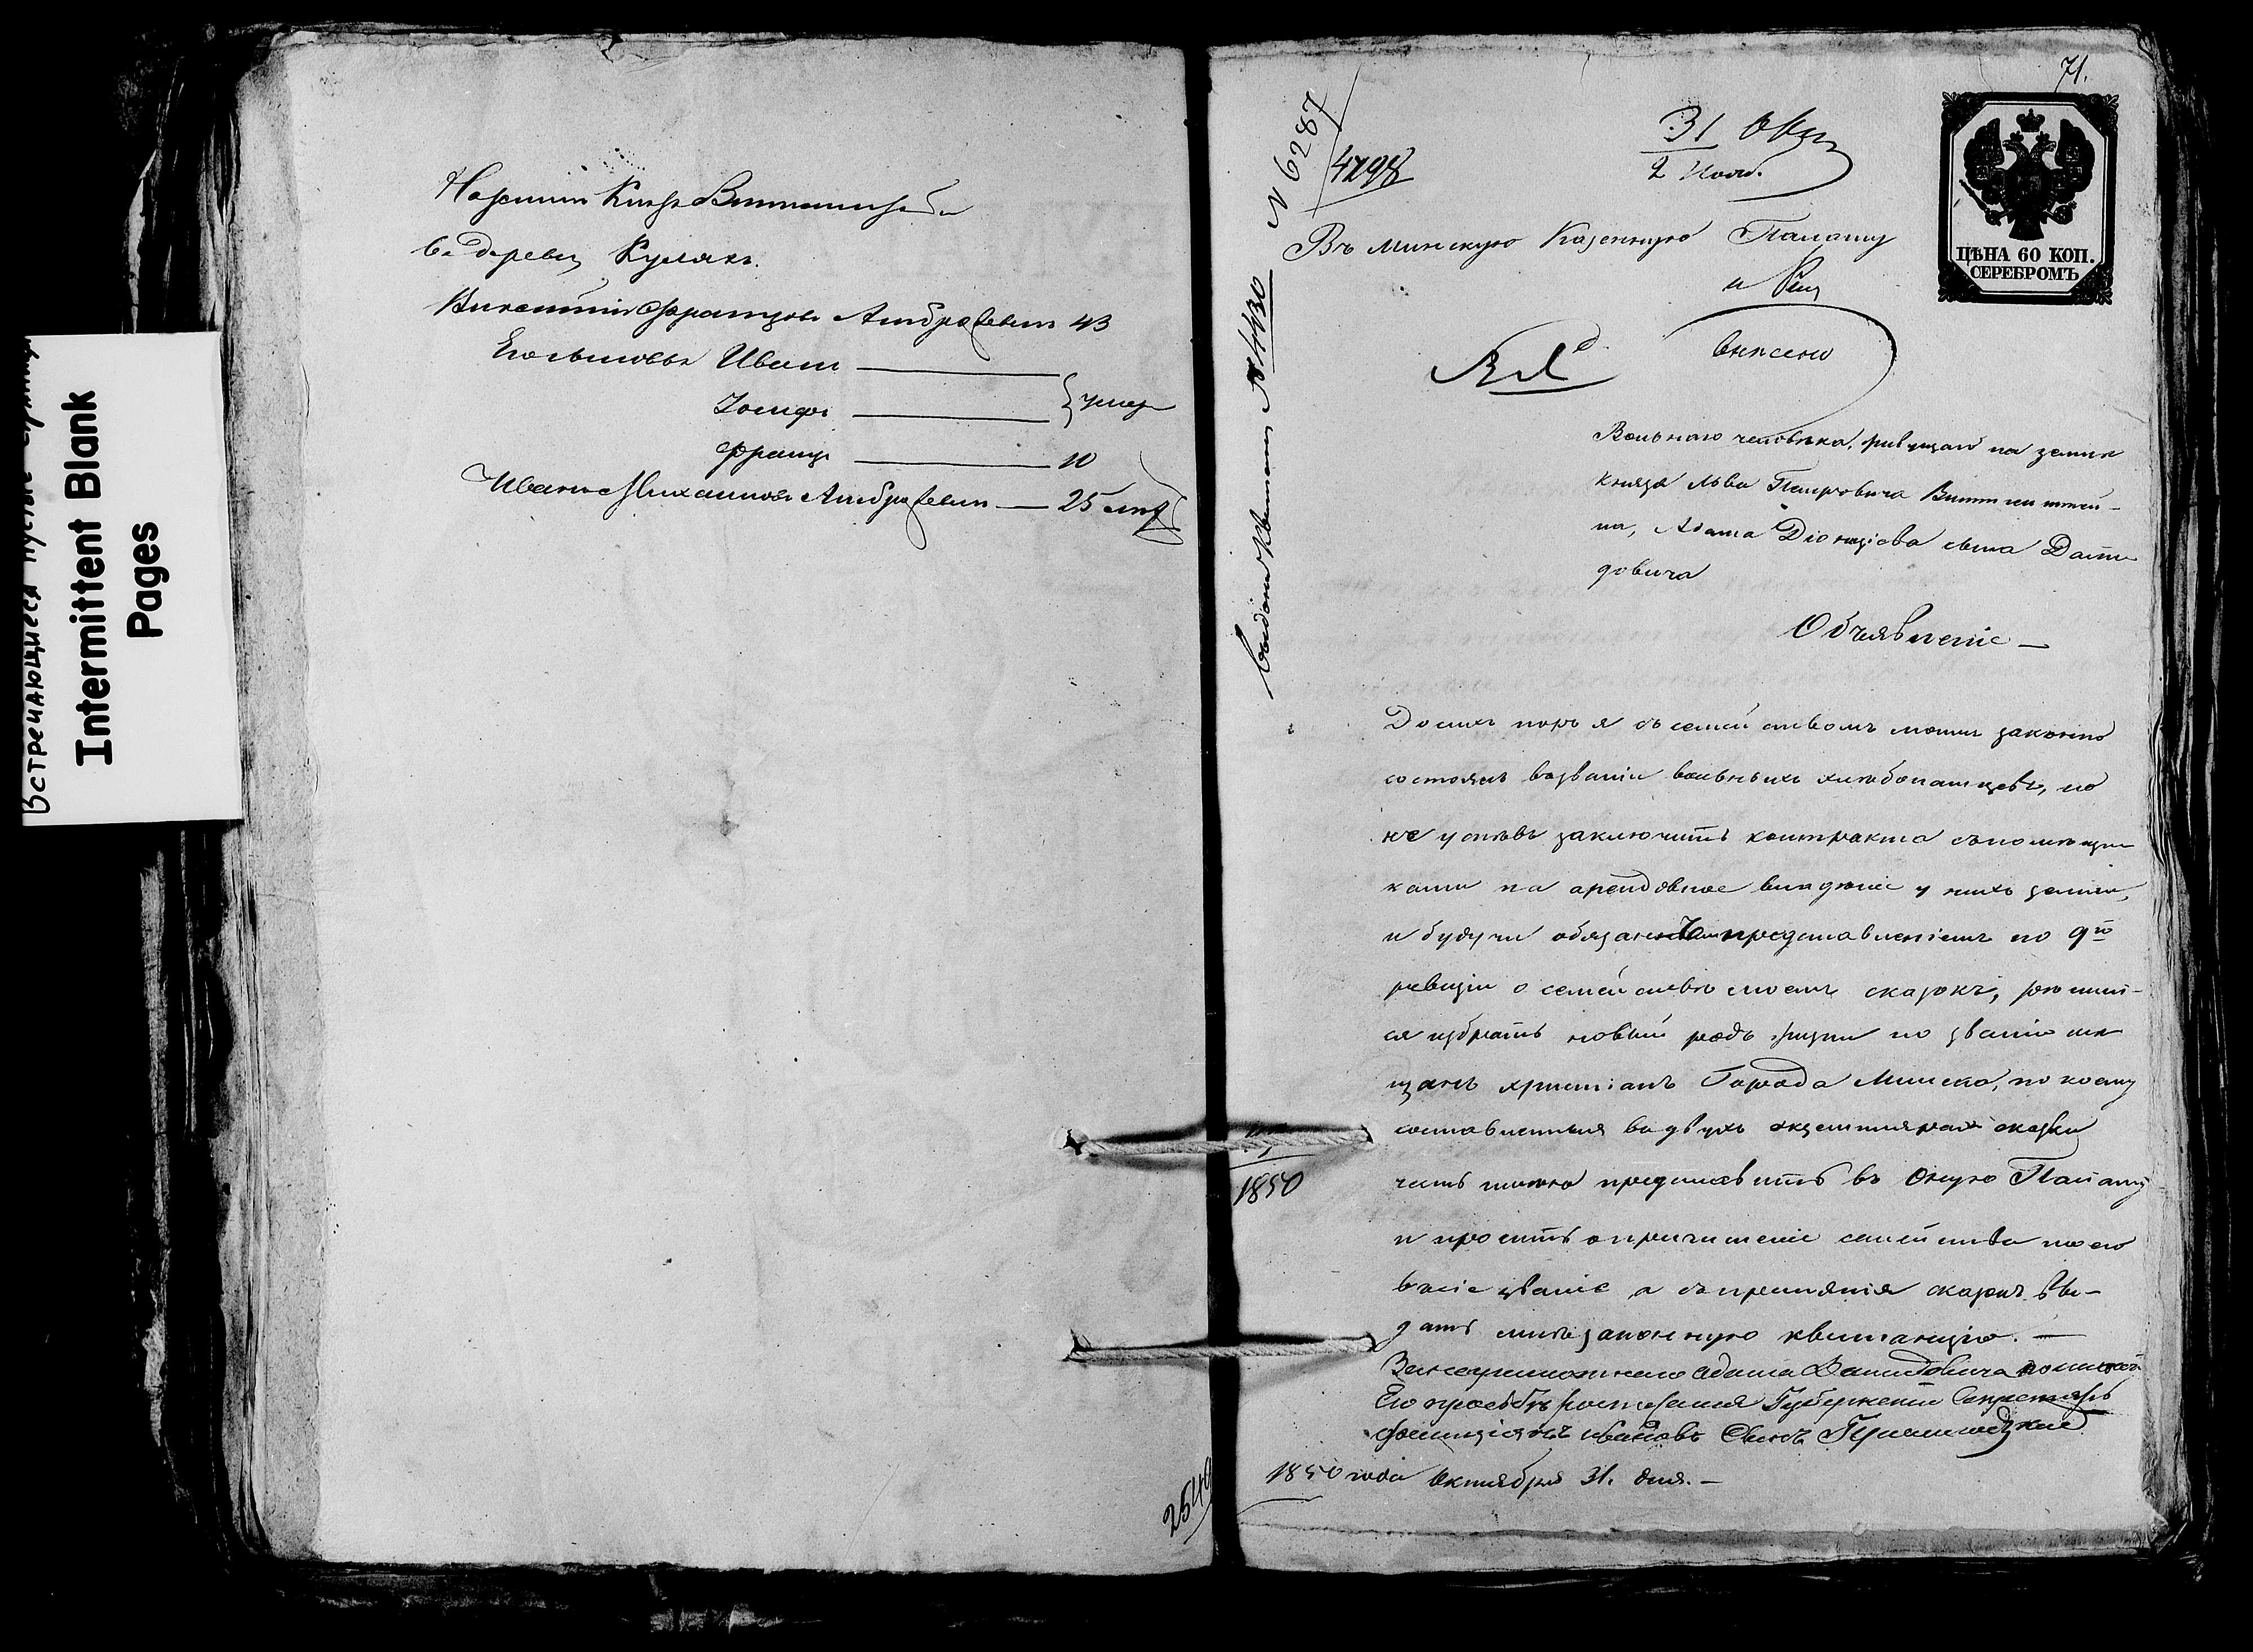 Встречающиеся пустые
Intermittent Blank
Pages
въ деревнѣ Кулякъ.
Викентій Францовъ Амброжевичъ 43
Его сыновья Иванъ
Іосифъ
} умер
Францъ 10
Иванъ Михайловъ Амброжевичъ — 25 лѣтъ
2540
71.
31 Окт
2 Нояб.
N 6287
4298
ЦѢНА 60 КОП.
СЕРЕБРОМЪ
Въ Минскую Казенную Палату
внесено
N 4430
1850
Вольнаго человѣка, живущаго на землѣ
князя Льва Петровича Витгенштей-
на, Адама Діонизіева сына Дани
довича
Объявленіе —
До сихъ поръ я съ семействомъ моимъ законно
состоялъ въ званіи вольныхъ хлѣбопашцевъ, но
не успѣвъ заключить контракта съ помѣщи
ками на арендовное владѣніе у нихъ земли,
и будучи обязанъ представленіемъ по 9й
ревизіи о семействѣ моемъ сказокъ, рѣшил-
ся избрать новый родъ жизни по званію мѣ
щанъ христіанъ Города Минска, по коему
составленныя въ двухъ экземплярахъ сказки
честь имѣю представить въ оную Палату
и просить о причисленіи семейства моего
въ сіе званіе, а въ принятіи сказокъ вы-
дать мнѣ законную квитанцію. —
За неграмотнаго Адама Данидовича по личной
Его прозьбѣ росписался Губернскій Секретарь
Фелиціянъ Ивановъ Сынъ
1850 года Октября 31. дня. —